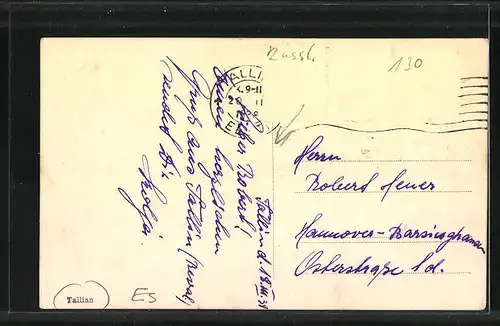 Russl.
130
TALLINN
Tallinn d. 18.III.31
Lieber Robert!
Einen herzlichen
Gruß aus Tallinn (Reval)
sendet Dir
Helga.
Herrn
Robert Meyer
Hannover-Barsinghausen
Osterstraße 1d.
Tallinn
ES